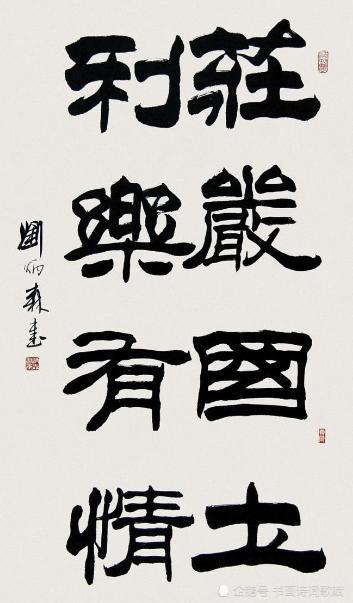 莊嚴國土
利樂有情
劉炳森書
企鹅号 书画诗词歌赋